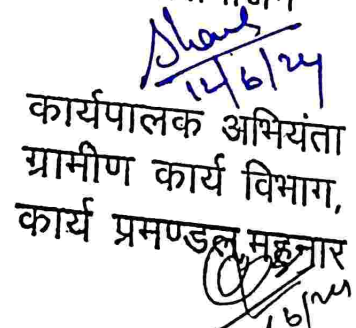 12/6/24
कार्यपालक अभियंता
ग्रामीण कार्य विभाग,
कार्य प्रमण्डल, महनार